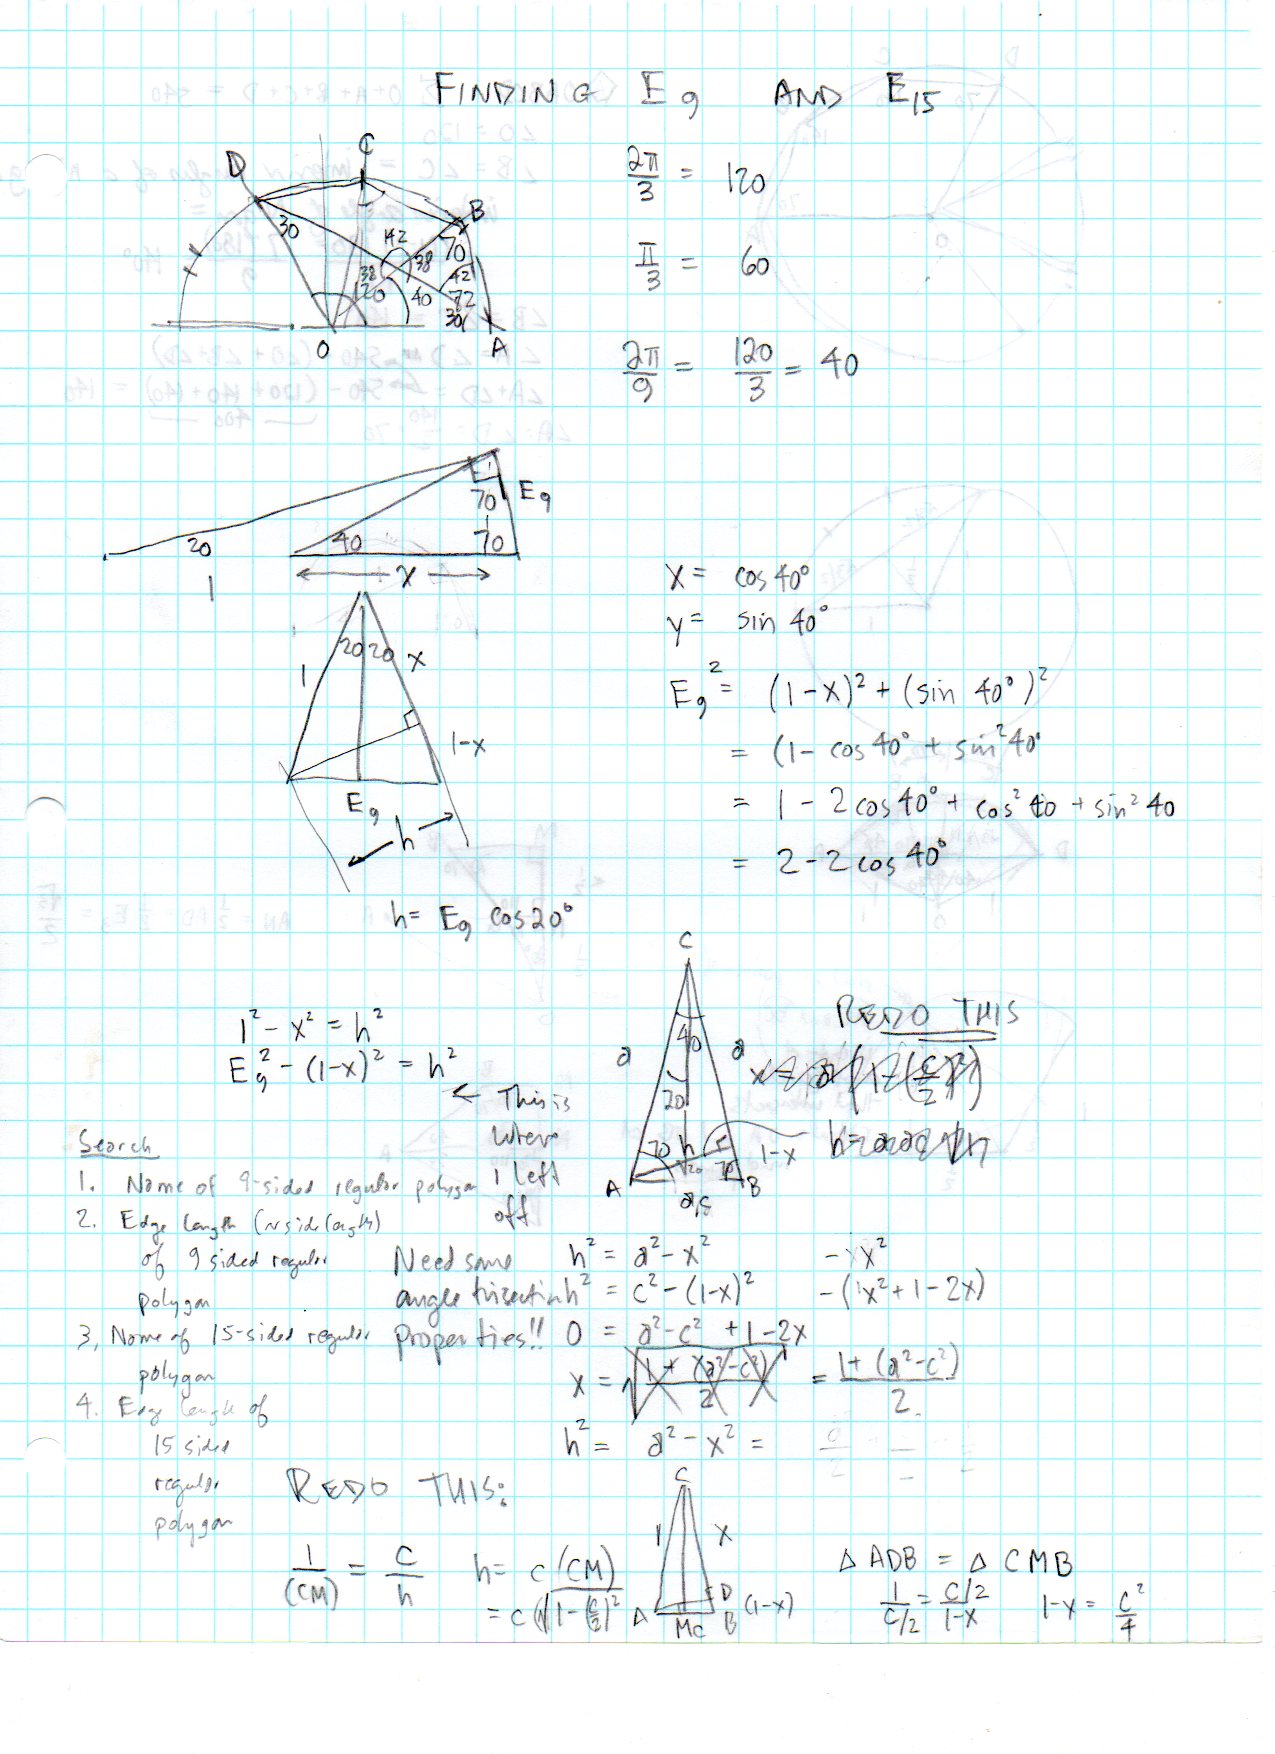 FINDING E9 AND E15
D C B
30 142 70
38 38 42
20 40 72
30
O A
2π/3 = 120
π/3 = 60
2π/9 = 120/3 = 40
E9
70
20 40 70
1 x
x = cos 40°
y = sin 40°
E9² = (1-x)² + (sin 40°)²
= (1 - cos 40° + sin² 40°
= 1 - 2 cos 40° + cos² 40 + sin² 40
= 2 - 2 cos 40°
20 20 x
1
1-x
E9
h
h = E9 cos 20°
1² - x² = h²
E9² - (1-x)² = h²
← This is
where
I left
off
C
40
a a
20
70 h 70 1-x
20
A B
REDO THIS
Search
1. Name of 9-sided regular polygon
2. Edge length (side length)
of 9 sided regular
polygon
3, Name of 15-sided regular
polygon
4. Edge length of
15 sided
regular
polygon
Need some
angle trisection
properties!!
h² = a² - x² - x²
h² = c² - (1-x)² - (x² + 1 - 2x)
0 = a² - c² + 1 - 2x
x = √1 + (a² - c²)/2 = 1 + (a² - c²)/2
h² = a² - x² =
REDO THIS:
1/(CM) = c/h
h = c (CM)
= c (√1 - (c/2)²
C
1 x
A D
M c B (1-x)
Δ ADB = Δ CMB
1/c/2 = c/2/1-x 1-x = c²/4